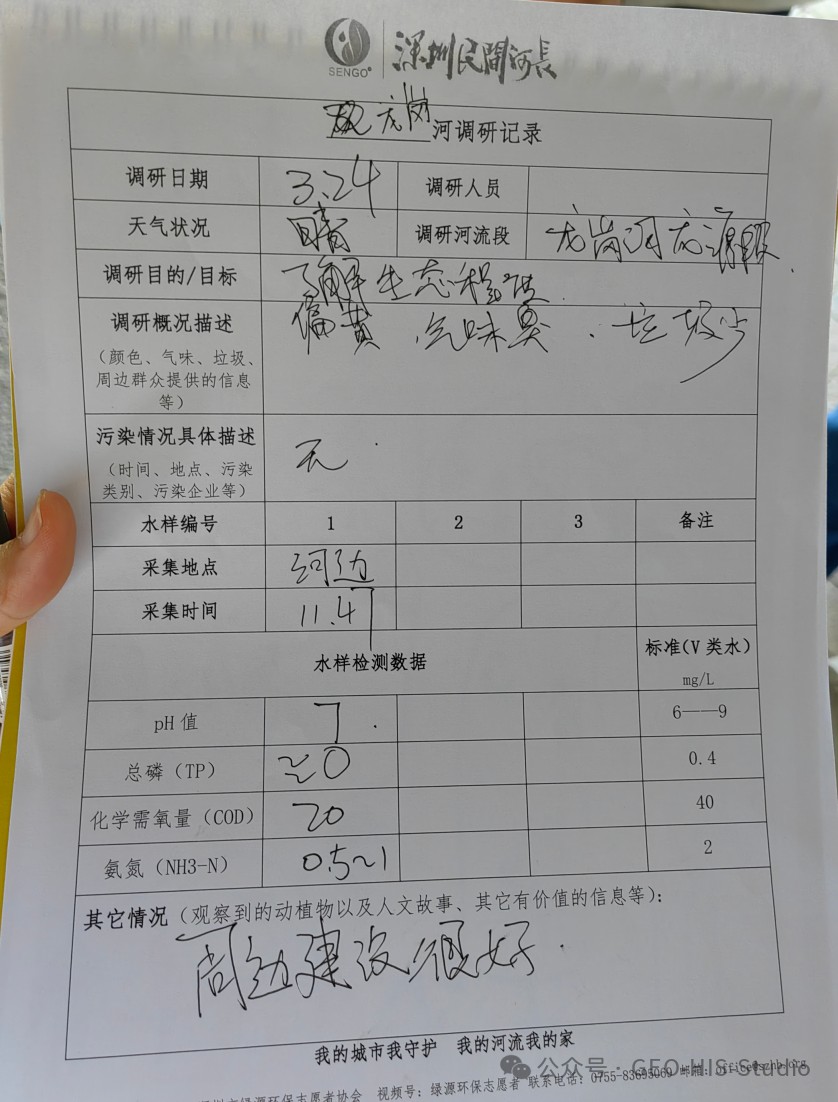 SENGO
深圳民間河長
龙岗河调研记录
调研日期 3.24 调研人员
天气状况 晴 调研河流段 龙岗河龙源段
调研目的/目标 了解生态
调研概况描述 偏黄 气味臭 . 垃圾少
(颜色、气味、垃圾、
周边群众提供的信息
等)
污染情况具体描述 无
(时间、地点、污染
类别、污染企业等)
水样编号 1 2 3 备注
采集地点 河边
采集时间 11.47
水样检测数据 标准(V 类水)
mg/L
pH 值 7 . 6——9
总磷(TP) ≈0 0.4
化学需氧量(COD) 20 40
氨氮(NH3-N) 0.5~1 2
其它情况(观察到的动植物以及人文故事、其它有价值的信息等):
周边建设很好.
我的城市我守护 我的河流我的家
绿源环保志愿者协会 视频号:绿源环保志愿者 联系电话:0755-83695069 邮箱:
公众号 · GEO-HIS-Studio